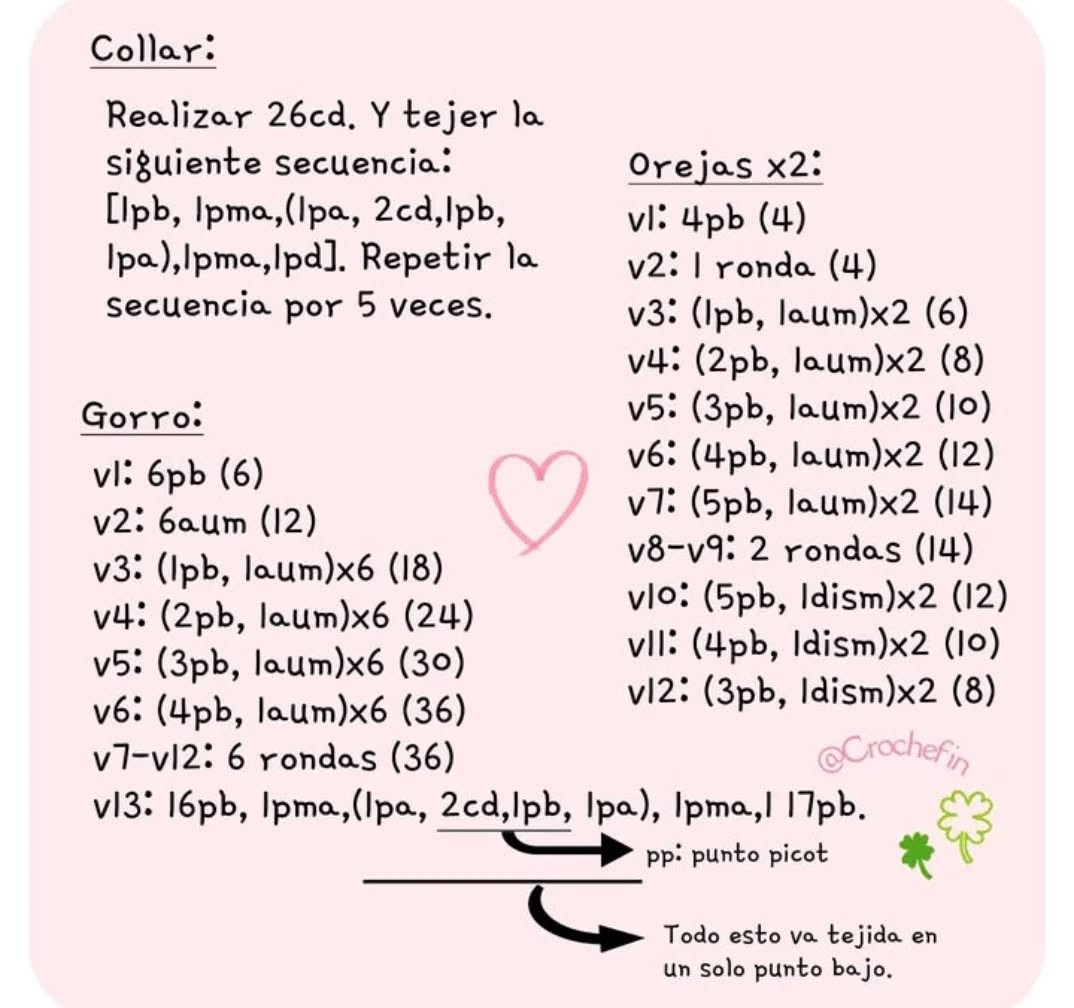 Collar:
Realizar 26cd. Y tejer la
siguiente secuencia:
[1pb, 1pma,(1pa, 2cd,1pb,
1pa),1pma,1pd]. Repetir la
secuencia por 5 veces.
Gorro:
v1: 6pb (6)
v2: 6aum (12)
v3: (1pb, 1aum)x6 (18)
v4: (2pb, 1aum)x6 (24)
v5: (3pb, 1aum)x6 (30)
v6: (4pb, 1aum)x6 (36)
v7-v12: 6 rondas (36)
v13: 16pb, 1pma,(1pa, 2cd,1pb, 1pa), 1pma,1 17pb.
pp: punto picot
Todo esto va tejida en
un solo punto bajo.
Orejas x2:
v1: 4pb (4)
v2: 1 ronda (4)
v3: (1pb, 1aum)x2 (6)
v4: (2pb, 1aum)x2 (8)
v5: (3pb, 1aum)x2 (10)
v6: (4pb, 1aum)x2 (12)
v7: (5pb, 1aum)x2 (14)
v8-v9: 2 rondas (14)
v10: (5pb, 1dism)x2 (12)
v11: (4pb, 1dism)x2 (10)
v12: (3pb, 1dism)x2 (8)
@Crochefin